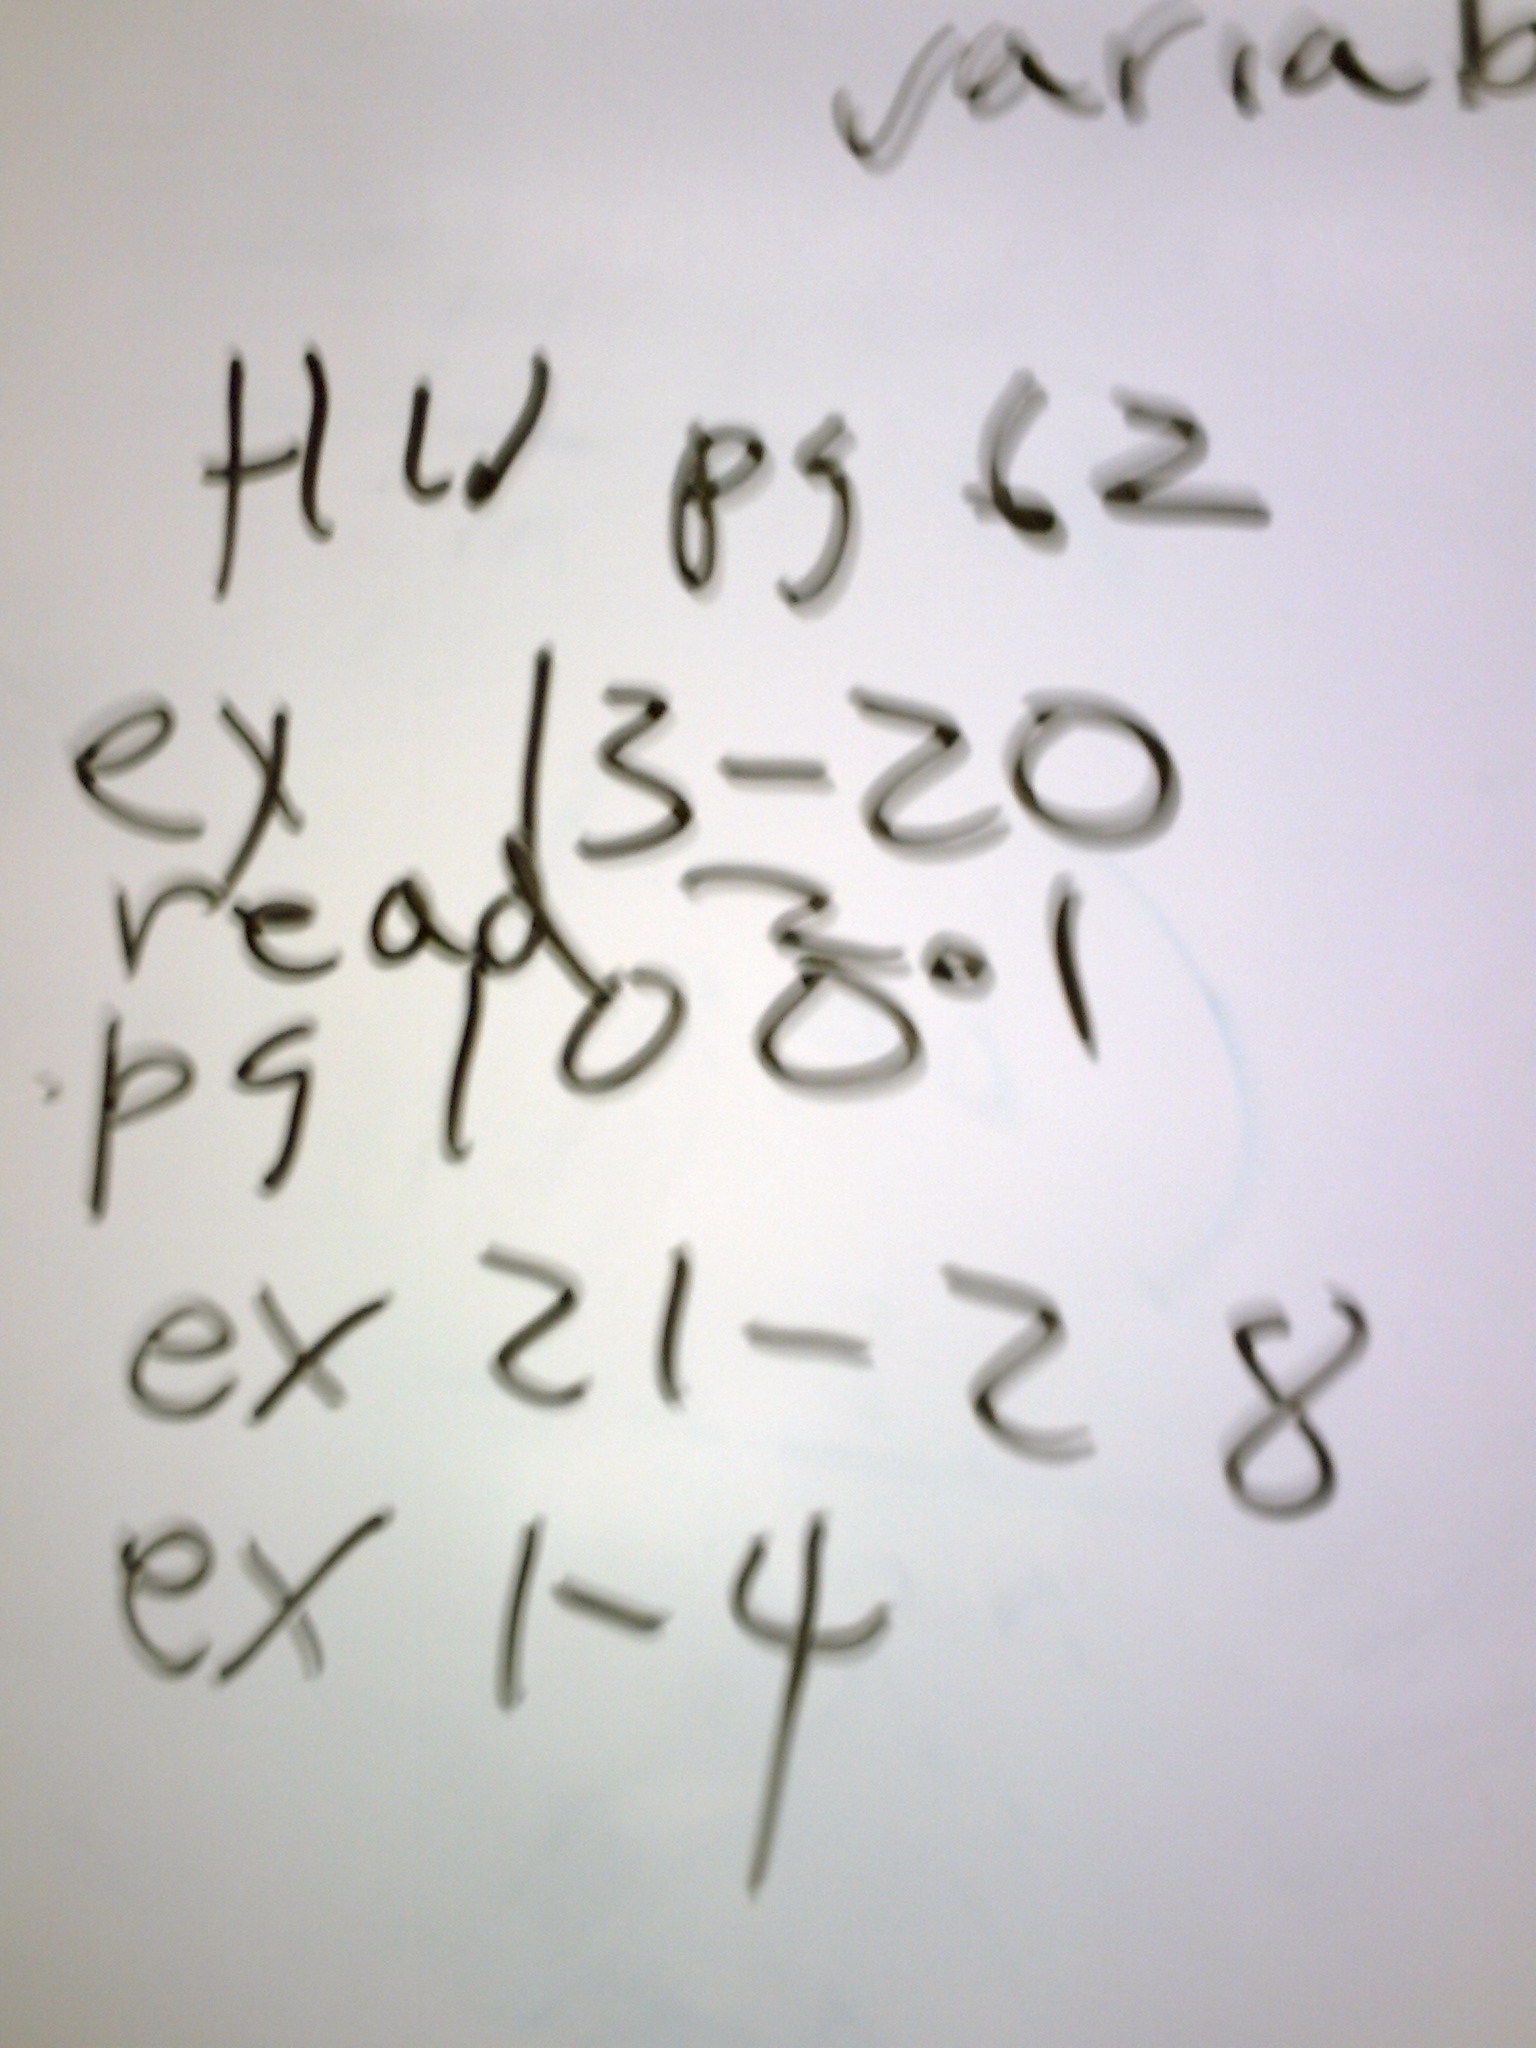 variab
HW pg 62
ex 13-20
read 2.1
pg 100
ex 21-28
ex 1-4